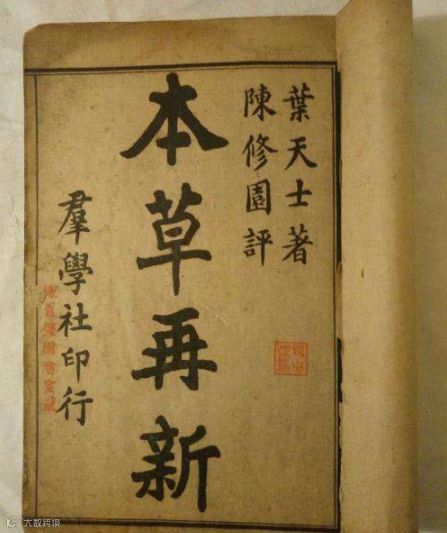 葉天士著
陳修園評
本草再新
羣學社印行
大数跨境